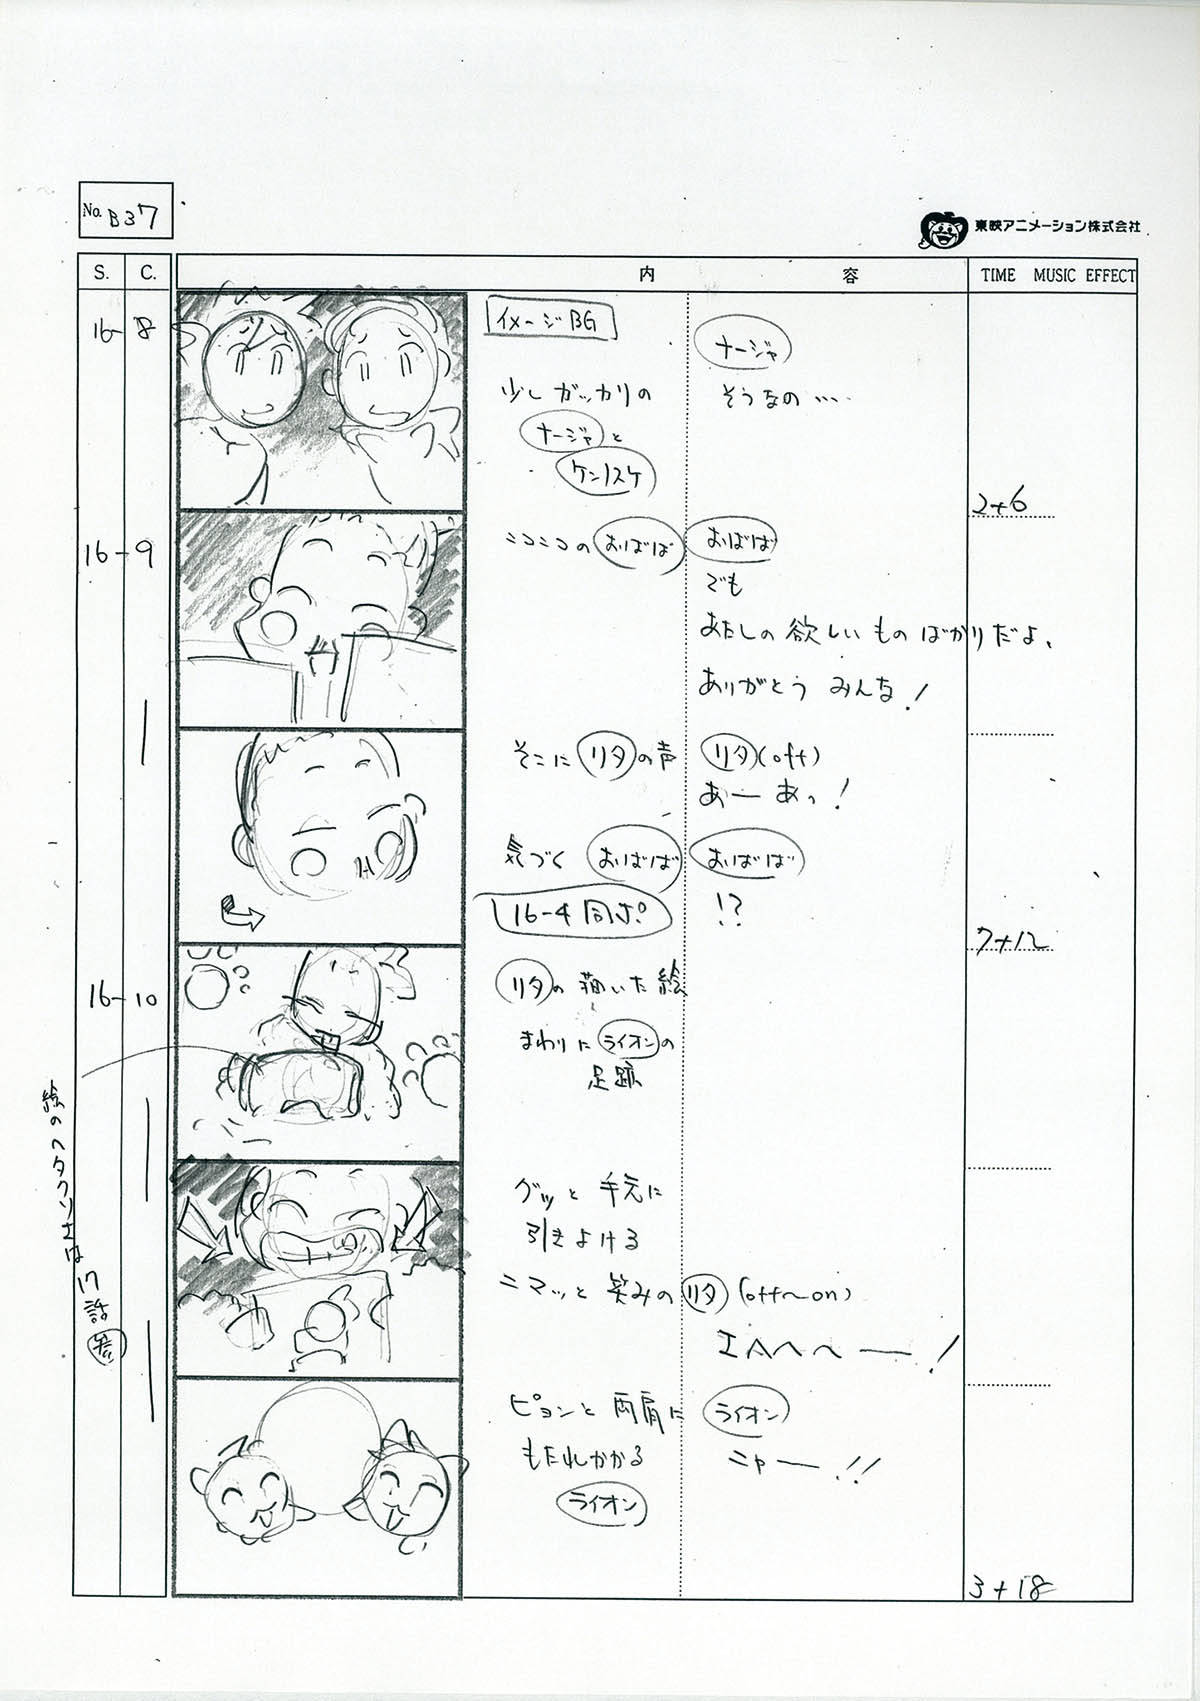 No. B37
東映アニメーション株式会社
S. C. 内容 TIME MUSIC EFFECT
16-8
イメージBG
少しガッカリの
ナージャと
ケンノスケ
ナージャ
そうなの….
2+6
16-9
ニコニコのおばば
おばば
でも
あたしの欲しいものばかりだよ、
ありがとうみんな!
そこにリタの声
リタ(off)
あーあっ!
気づくおばば
16-4同ポ
おばば
!?
7+12
16-10
リタの描いた絵
まわりにライオンの
足跡
絵のヘタクソさは17話参
グッと手元に
引きよける
ニマッと笑みのリタ(off~on)
エヘヘヘー!
ピョンと両肩に
もたれかかる
ライオン
ライオン
ニャー!!
3+18